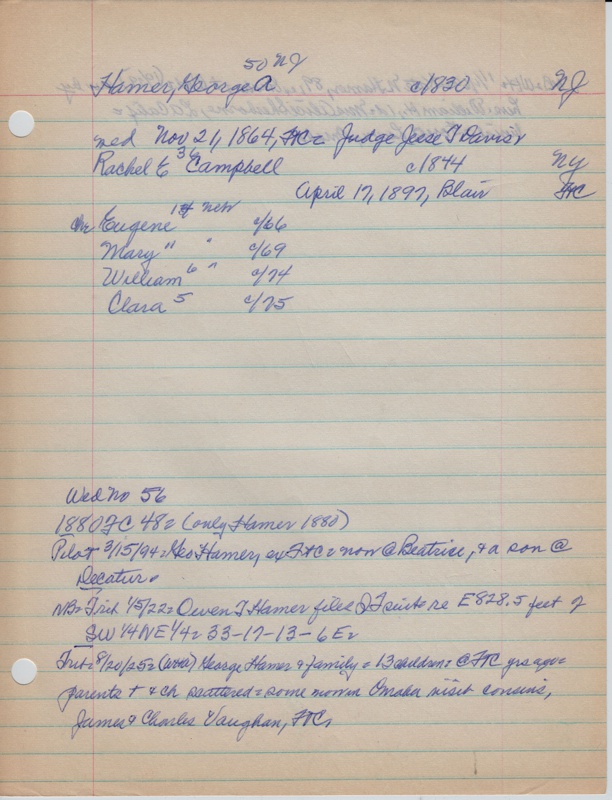 50 NJ
Hamer, George A c1830 NJ
med Nov 21, 1864, FtC = Judge Jesse T Davis
Rachel E 36 Campbell c1844 NY
April 17, 1897, Blair FtC
Eugene 14 New c/66
Mary " " c/69
William 6 " c/74
Clara 5 c/75
Wed No 56
1880 FC 48 = (only Hamer 1880)
Pilot 3/15/94 = Geo Hamer, ex FtC = now @ Beatrice, & a son @
Decatur.
NB = Trib 1/5/22 = Owen T Hamer files QT suit re E 828.5 feet of
SW 1/4 NE 1/4 = 33-17-13-6E
Trib = 8/20/25 = George Hamer & family = 13 @ FtC yrs ago =
parents + & ch scattered = some now in Omaha visit cousins,
James & Charles Vaughan, FtC